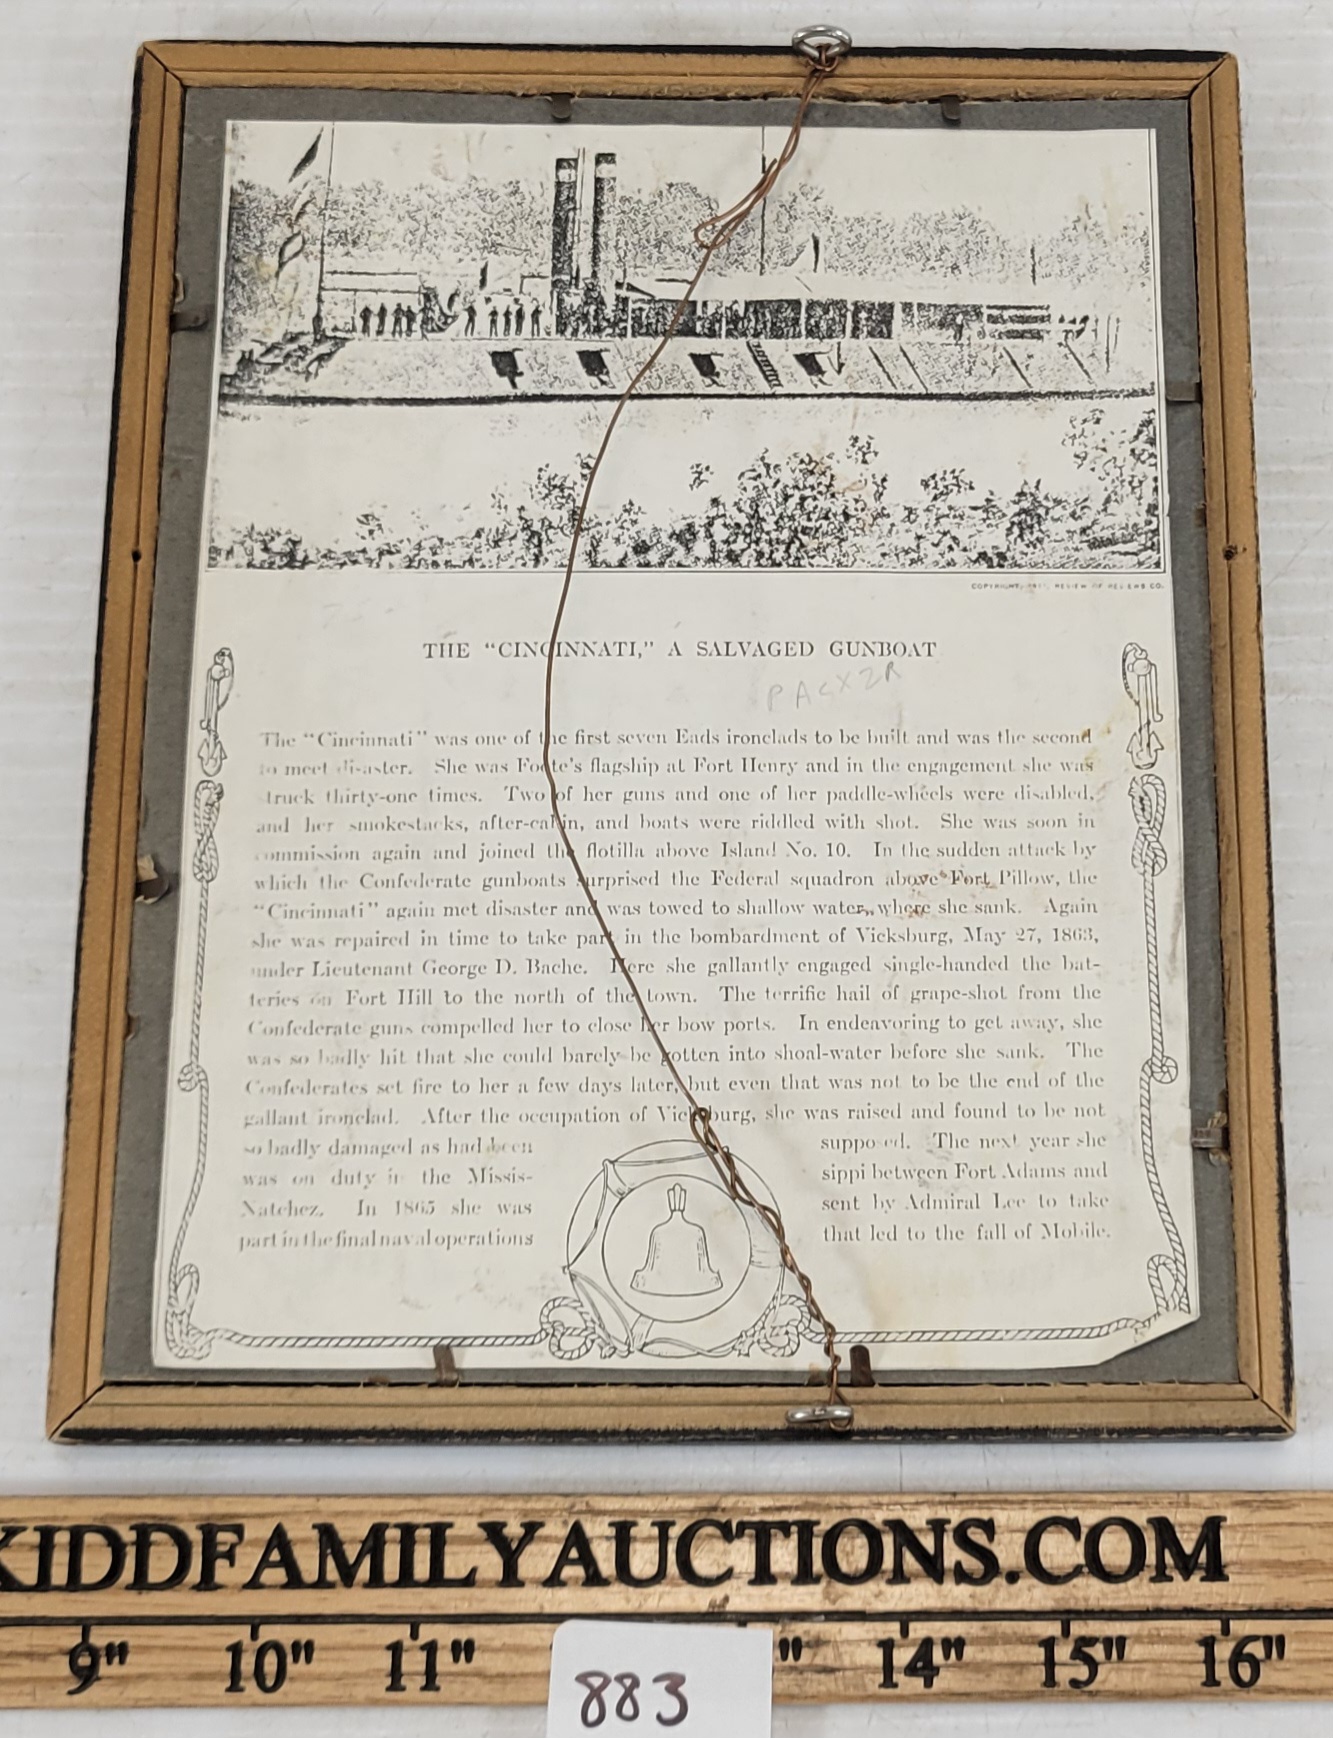 COPYRIGHT, 1911, REVIEW OF REVIEWS CO.
THE "CINCINNATI," A SALVAGED GUNBOAT
PACXZR
The "Cincinnati" was one of the first seven Eads ironclads to be built and was the second
to meet disaster. She was Foote's flagship at Fort Henry and in the engagement she was
truck thirty-one times. Two of her guns and one of her paddle-wheels were disabled,
and her smokestacks, after-cabin, and boats were riddled with shot. She was soon in
commission again and joined the flotilla above Island No. 10. In the sudden attack by
which the Confederate gunboats surprised the Federal squadron above Fort Pillow, the
"Cincinnati" again met disaster and was towed to shallow water, where she sank. Again
she was repaired in time to take part in the bombardment of Vicksburg, May 27, 1863,
under Lieutenant George D. Bache. Here she gallantly engaged single-handed the bat-
teries on Fort Hill to the north of the town. The terrific hail of grape-shot from the
Confederate guns compelled her to close her bow ports. In endeavoring to get away, she
was so badly hit that she could barely be gotten into shoal-water before she sank. The
Confederates set fire to her a few days later, but even that was not to be the end of the
gallant ironclad. After the occupation of Vicksburg, she was raised and found to be not
so badly damaged as had been supposed. The next year she
was on duty in the Missis- sippi between Fort Adams and
Natchez. In 1865 she was sent by Admiral Lee to take
part in the final naval operations that led to the fall of Mobile.
KIDDFAMILYAUCTIONS.COM
9" 10" 11" " 14" 15" 16"
883